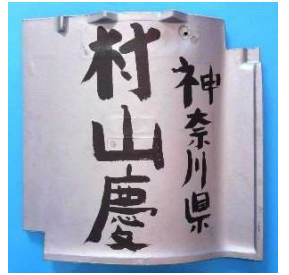 神奈川県
村山慶